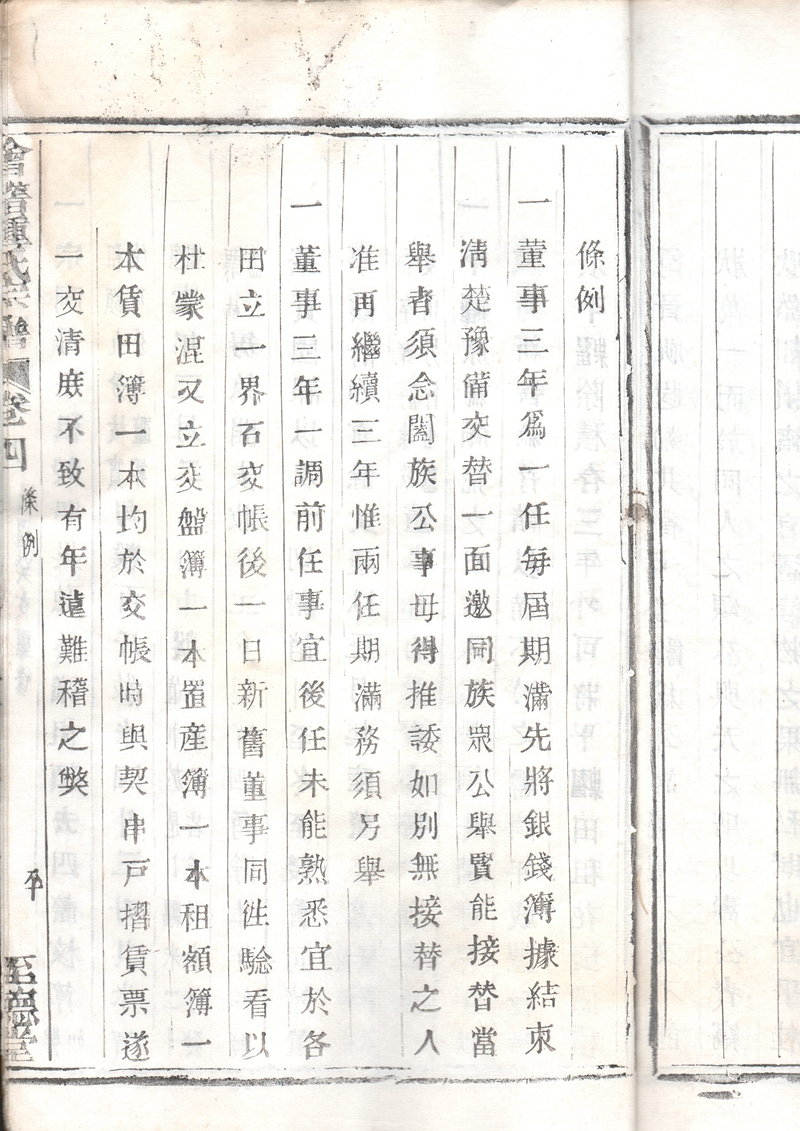 條例
一董事三年爲一任每屆期滿先將銀錢簿據結束
淸楚豫備交替一面邀同族眾公舉賢能接替當
舉者須念闔族公事毋得推諉如別無接替之人
准再繼續三年惟兩任期滿務須另舉
一董事三年一調前任事宜後任未能熟悉宜於各
田立一界石交帳後一日新舊董事同徃騐看以
杜蒙混又立交盤簿一本置產簿一本租額簿一
本賃田簿一本均於交帳時與契串戶摺賃票遂
一交清庶不致有年遠難稽之弊
會稽 氏宗譜 卷四
條例
至德堂